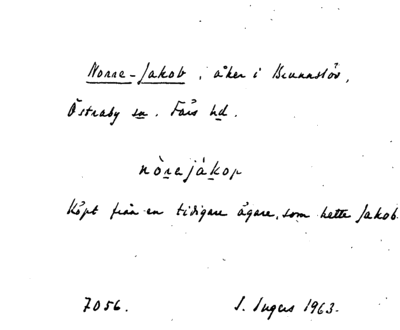 Norre-Jakob, åker i Brunnslöv,
Östraby sn. Färs hd.
nòrejákop
Köpt från en tidigare ägare, som hette Jakob.
7056. I. Ingers 1963.